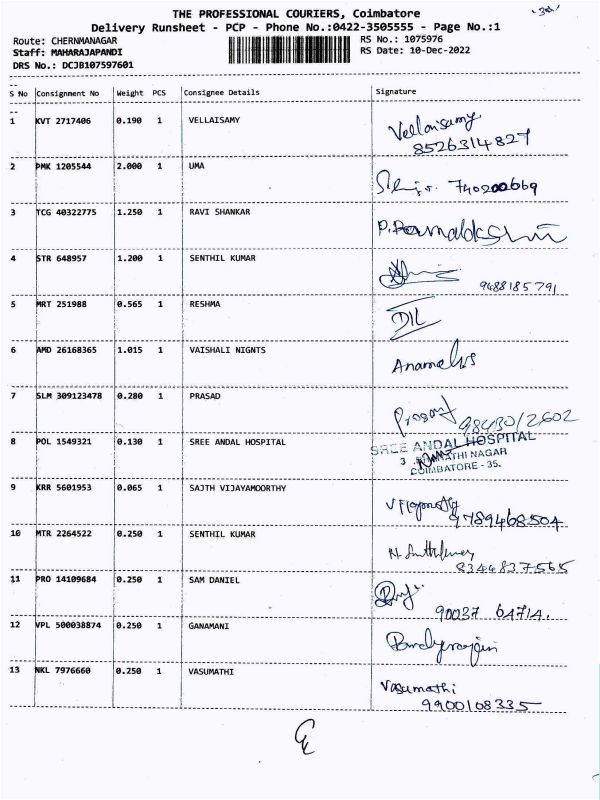 THE PROFESSIONAL COURIERS, Coimbatore
Delivery Runsheet - PCP - Phone No.:0422-3505555 - Page No.:1
Route: CHERNMANAGAR RS No.: 1075976
Staff: MAHARAJAPANDI RS Date: 10-Dec-2022
DRS No.: DCJB107597601
S No Consignment No Weight PCS Consignee Details Signature
1 KVT 2717406 0.190 1 VELLAISAMY Vellaisamy
8526314827
2 PMK 1205544 2.000 1 UMA
3 TCG 40322775 1.250 1 RAVI SHANKAR
4 STR 648957 1.200 1 SENTHIL KUMAR
9488185791
5 MRT 251988 0.565 1 RESHMA
6 AMD 26168365 1.015 1 VAISHALI NIGNTS
7 SLM 309123478 0.280 1 PRASAD Prasad 9843012602
8 POL 1549321 0.130 1 SREE ANDAL HOSPITAL SREE ANDAL HOSPITAL
NAGAR
COIMBATORE - 35.
9 KRR 5601953 0.065 1 SAJTH VIJAYAMOORTHY
9789468504
10 MTR 2264522 0.250 1 SENTHIL KUMAR
8344837565
11 PRO 14109684 0.250 1 SAM DANIEL
90037 64714.
12 VPL 500038874 0.250 1 GANAMANI
13 NKL 7976660 0.250 1 VASUMATHI Vasumathi
9900108335